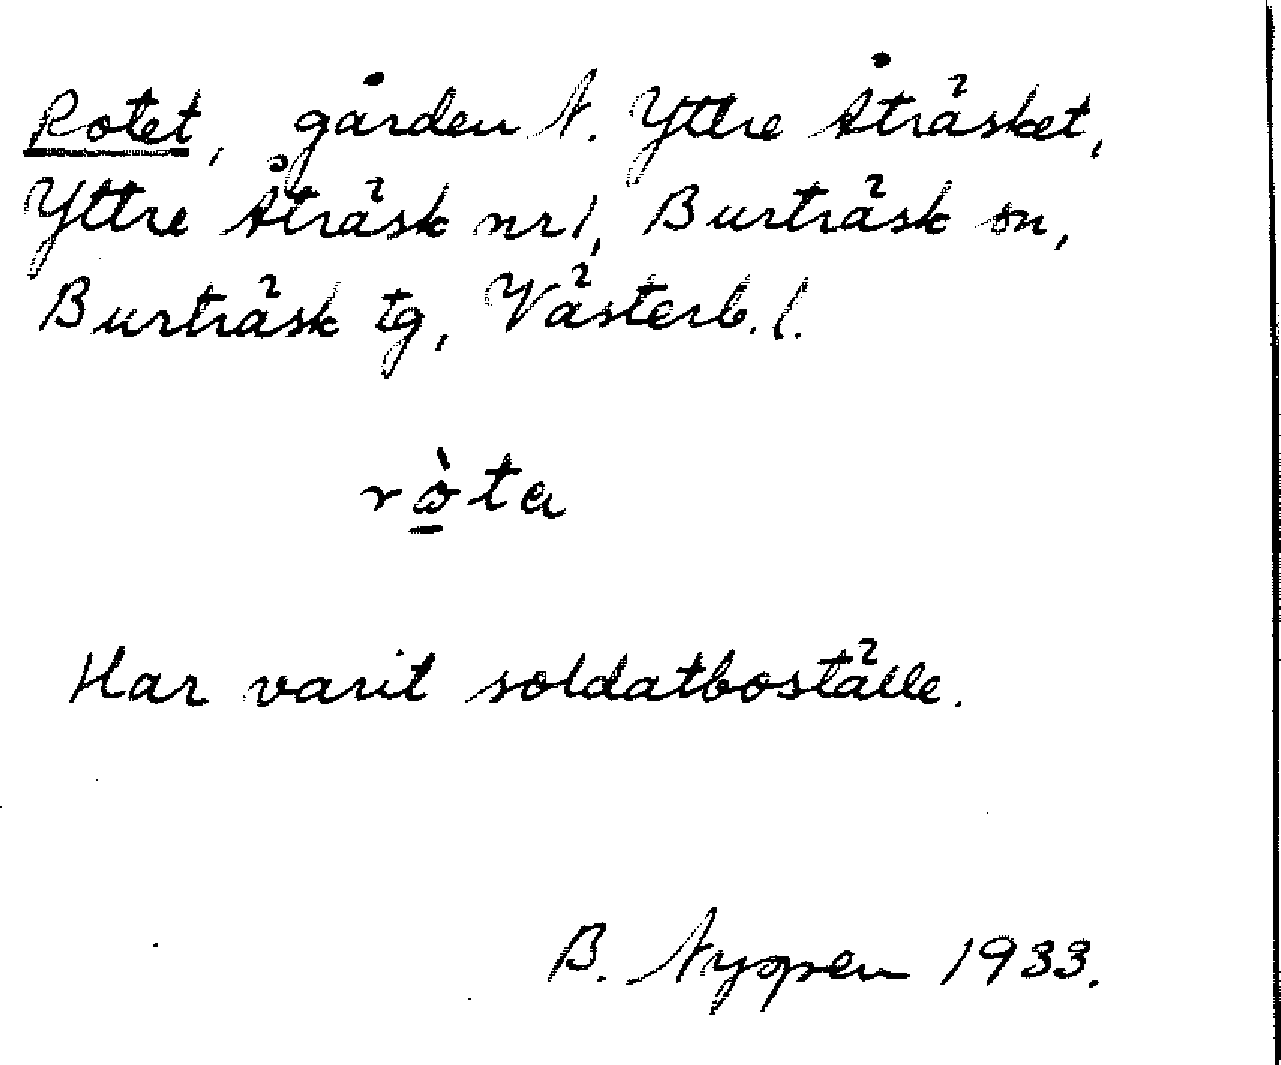 Rotet, gården N. Yttre Åträsket,
Yttre Åträsk nr 1, Burträsk sn,
Burträsk tg, Västerb. l.
rò̱ta
Har varit soldatboställe.
B. Nyopen 1933.